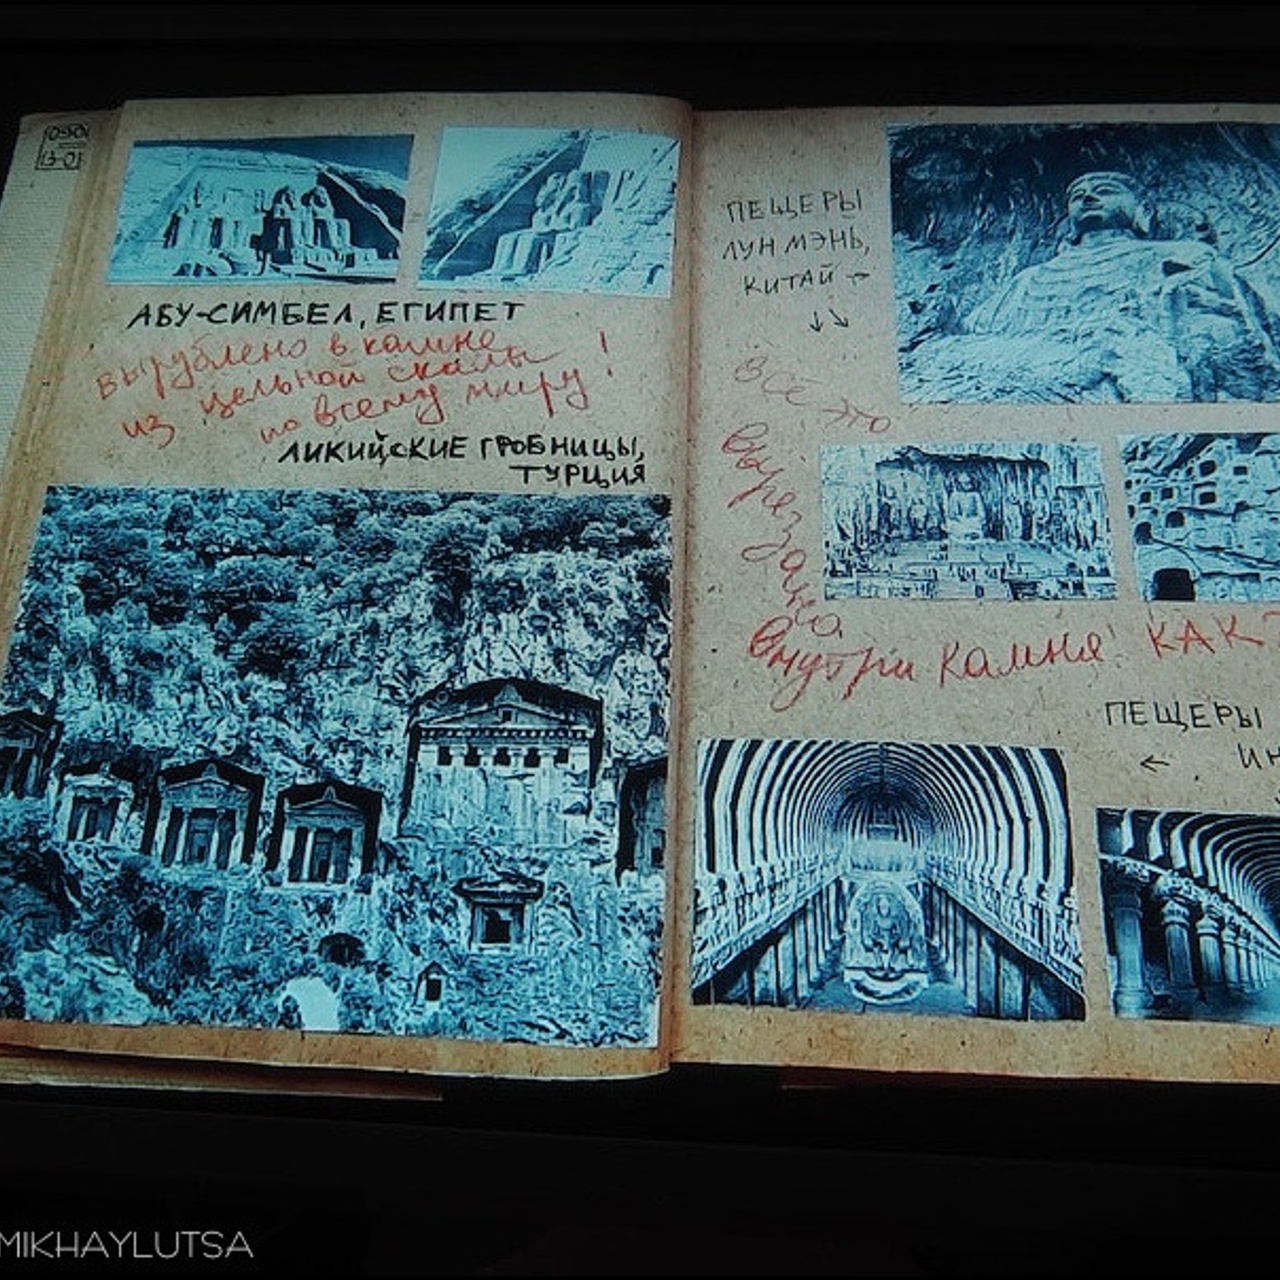 АБУ-СИМБЕЛ, ЕГИПЕТ
вырублено в камне
из цельной скалы
по всему миру!
ЛИКИЙСКИЕ ГРОБНИЦЫ,
ТУРЦИЯ
ПЕЩЕРЫ
ЛУН МЭНЬ,
КИТАЙ →
↓↘
Всё это
вырезано
внутри камня! КАК?
ПЕЩЕРЫ
←
MIKHAYLUTSA